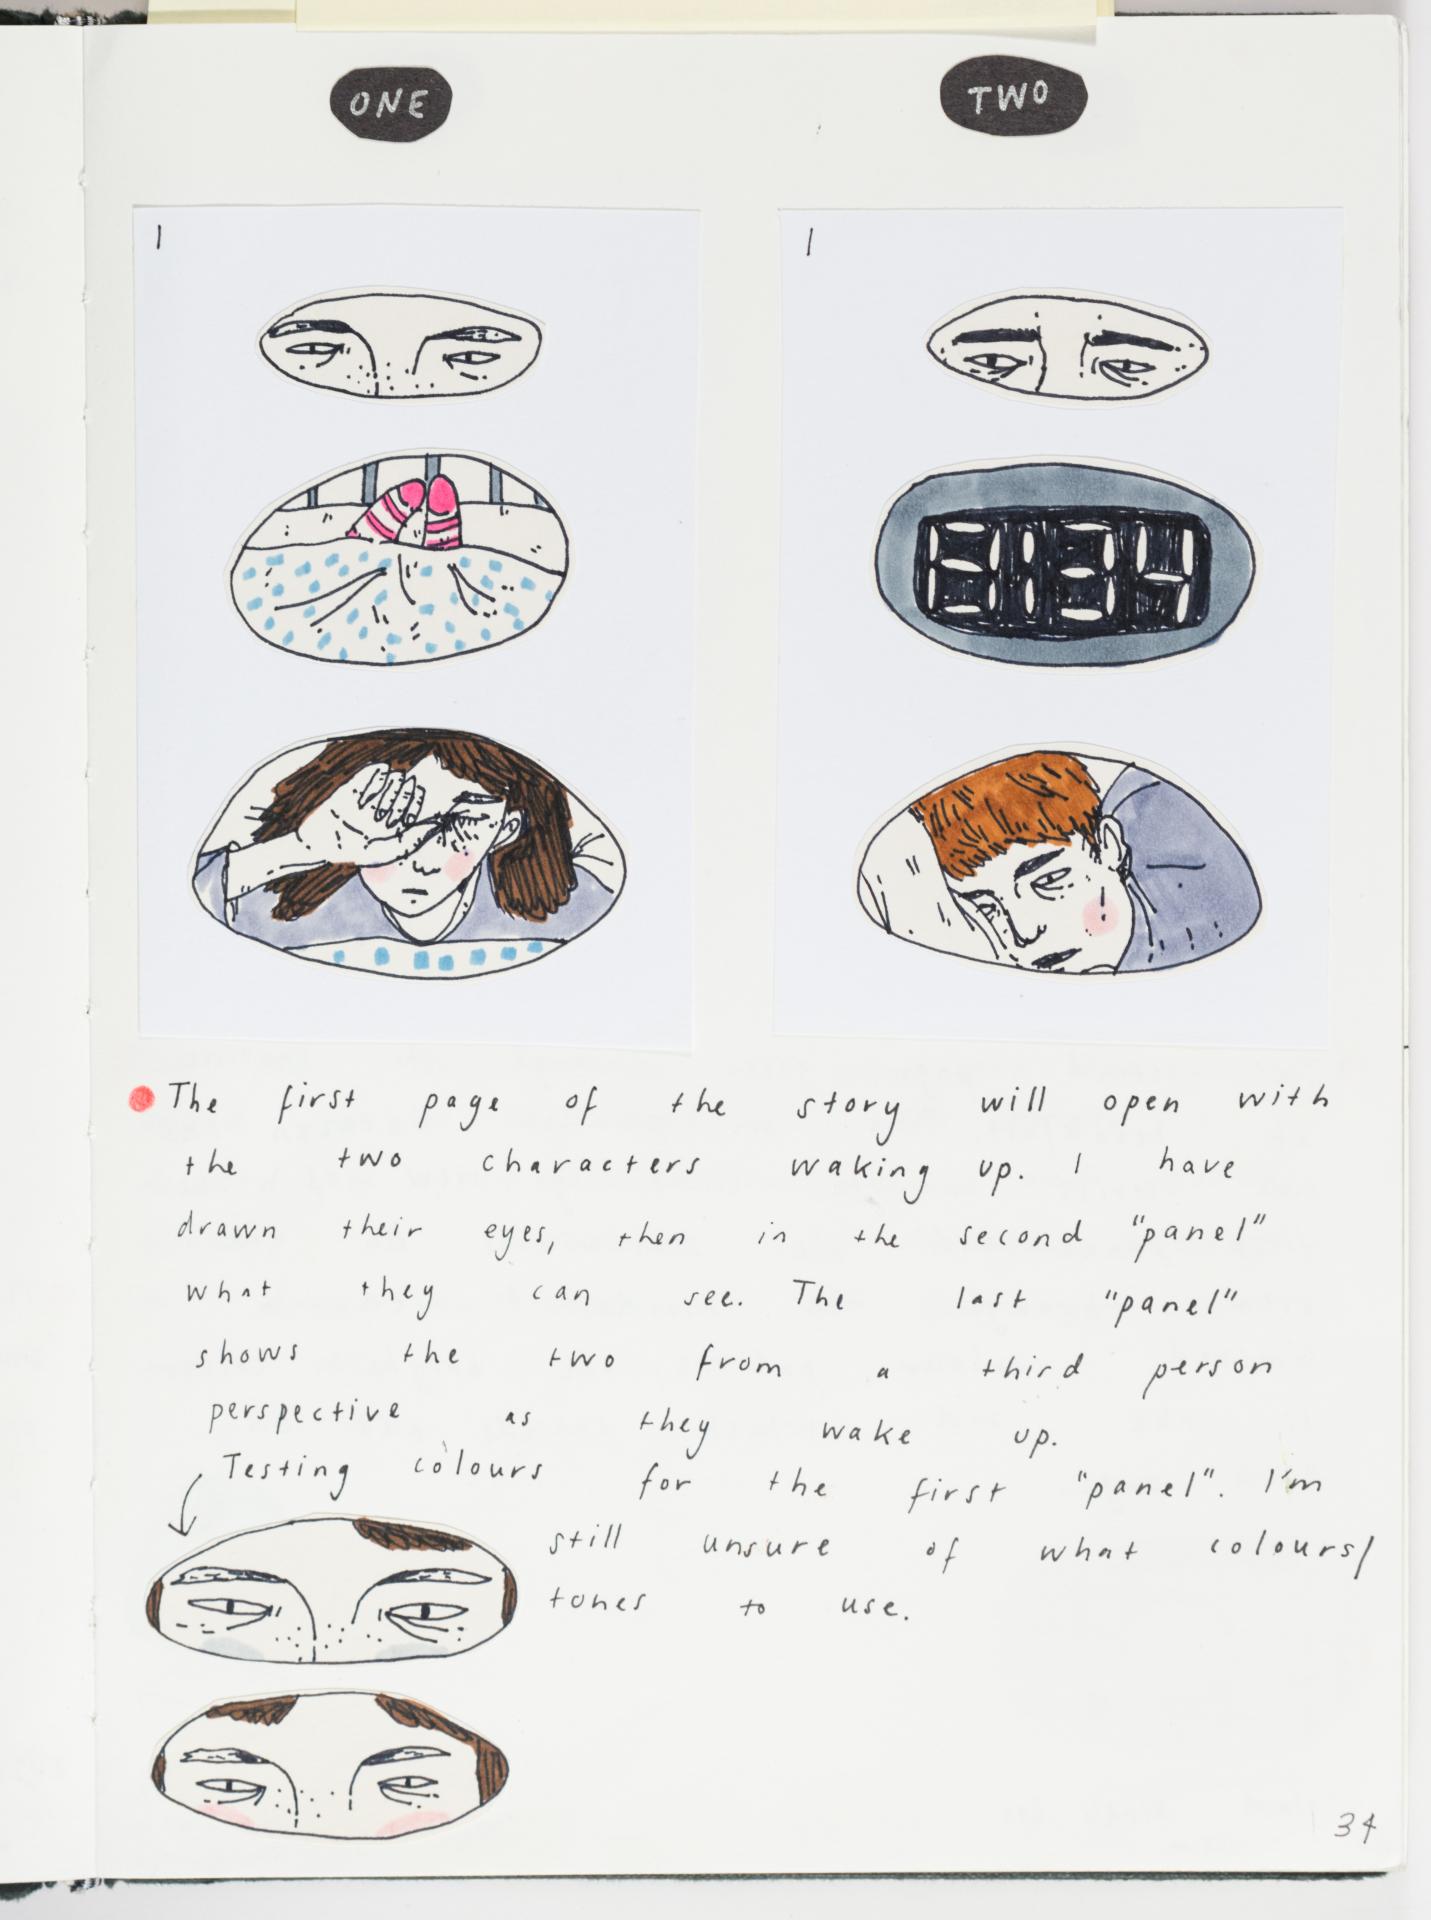 ONE
TWO
1
1
8:34
The first page of the story will open with
the two characters waking up. I have
drawn their eyes, then in the second "panel"
what they can see. The last "panel"
shows the two from a third person
perspective as they wake up.
Testing colours for the first "panel". I'm
still unsure of what colours/
tones to use.
34